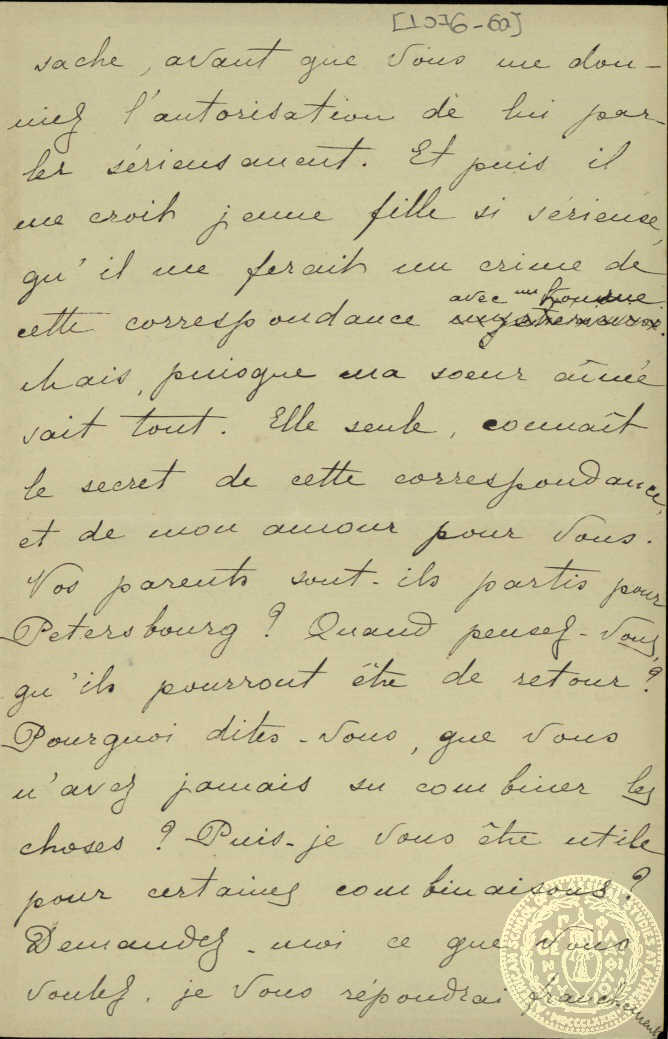 [1376-60]
sache, avant que vous me don-
niez l'autorisation de lui par-
ler sérieusement. Et puis il
me croit jeune fille si sérieuse,
qu'il me ferait un crime de
avec un homme
cette correspondance mystérieuse.
Mais, puisque ma soeur aînée
sait tout. Elle seule, connaît
le secret de cette correspondance,
et de mon amour pour vous.
Vos parents sont-ils partis pour
Petersbourg? Quand pensez-vous,
qu'ils pourront être de retour?
Pourquoi dites-vous, que vous
n'avez jamais su combiner les
choses? Puis-je vous être utile
pour certaines combinaisons?
Demandez-moi ce que vous
voulez. je vous répondrai franchement